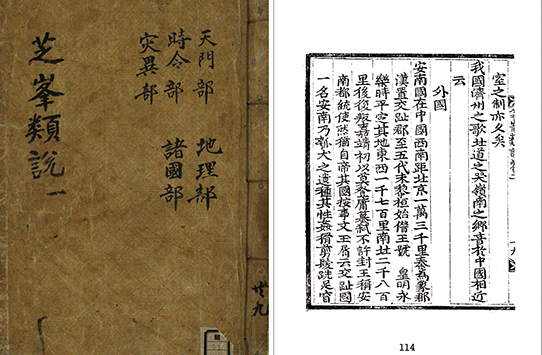 天門部 地理部
時令部 諸國部
災異部
芝峯類說 一
室之制亦久矣
我國濟州之歌北道之哭嶺南之鄉音於中國相近
云
外國
安南國在中國西南距北京一萬三千里秦爲象郡
漢置交趾郡至五代末黎桓始僭王號 皇明永
樂時平定其地東西一千七百里南北二千八百
里後復叛嘉靖初以莫登庸簒弑不許封王稱安
南都統使然猶自帝其國按事文玉屑云交趾國
一名安南乃瓠犬之遺種其性姦猾剪髮跣足窅
114